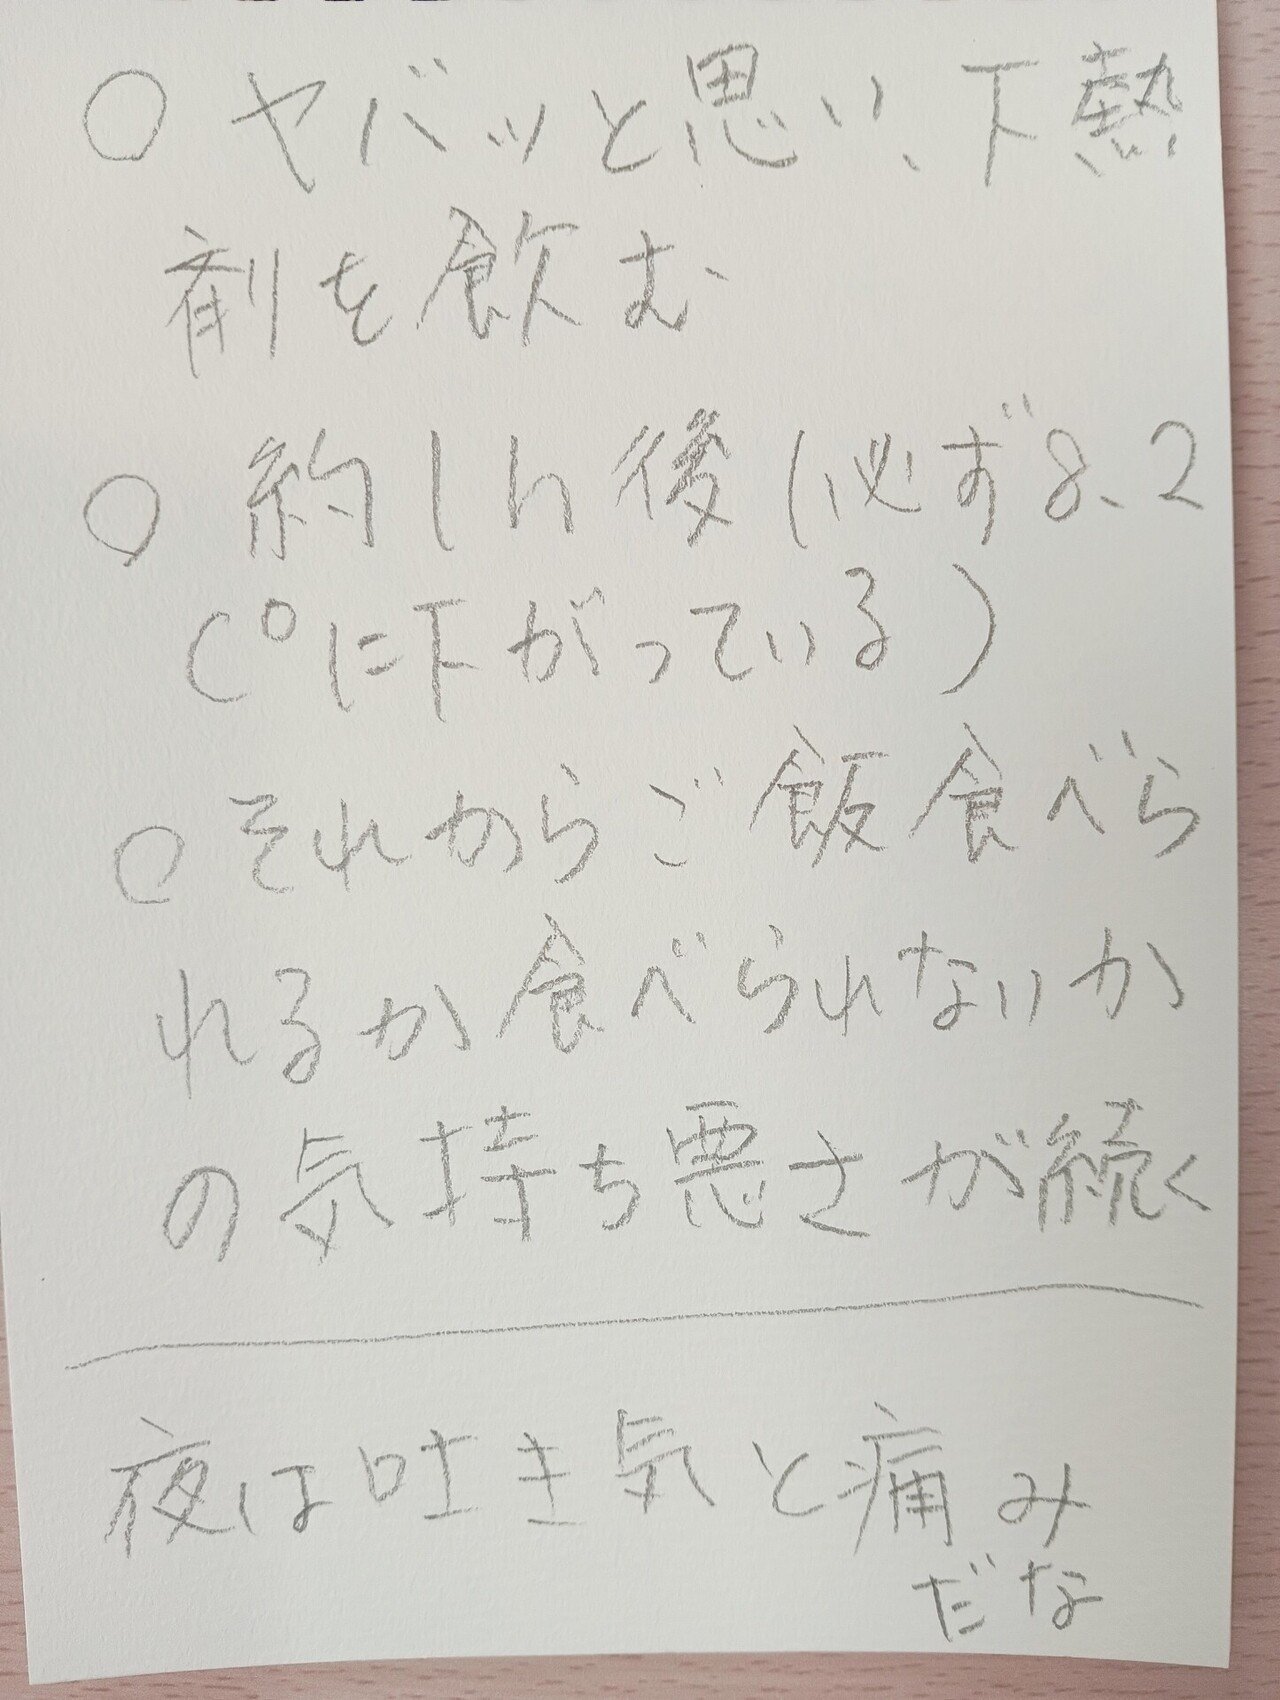 ○ ヤバッと思い、下熱
剤を飲む
○ 約1h後(必ず8.2
C°に下がっている)
○ それからご飯食べら
れるか食べられないか
の気持ち悪さが続く
夜は吐き気と痛み
だな